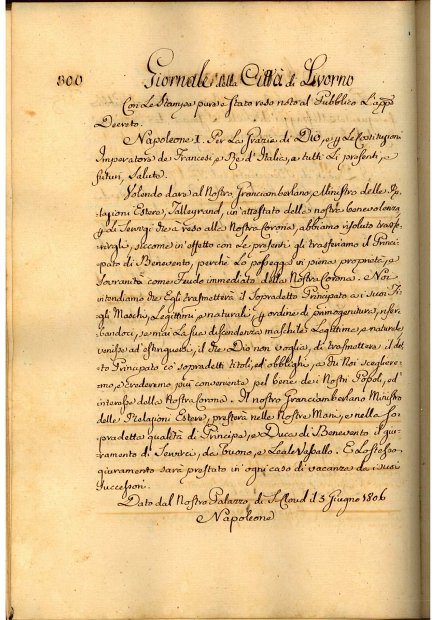 300 Giornale della Città di Livorno
Con le Stampe pure è stato reso noto al Pubblico L'app.º
Decreto.
Napoleone I. Per La Grazia di Dio, e pp Le Costituzioni
Imperatore de Francesi, e Re d'Italia, a tutti Li presenti, e
futuri, Salute.
Volendo dare al Nostro Granciamberlano, e Ministro delle Re-
lazioni Estere, Talleyrand, un'attestato della nostra benevolenza,
pp di Servigi che à reso alla Nostra Corona, abbiamo risoluto trasfe-
rirgli, siccome in effetto con Le presenti gli trasferiamo il Princi-
pato di Benevento, perchè Lo possegga in piena proprietà, e
Sovranità come Feudo immediato della Nostra Corona. Noi
intendiamo che Egli trasmetterà il Sopradetto Principato a i suoi Fi-
gli Maschi, Legittimi, e naturali pp ordine di primogenitura, riser-
bandoci, se mai La sua discendenza maschile Legittima, e naturale
venisse ad estinguersi, il che Dio non voglia, di trasmettere il det-
to Principato co' sopradetti titoli, ed' obblighi, a chi Noi scegliere-
mo, e crederemo più conveniente pel bene dei Nostri Popoli, ed'
interesse della Nostra Corona. Il nostro Granciamberlano Ministro
delle Relazioni Estere, presterà nelle Nostre Mani, e nella so-
pradetta qualità di Principe, e Duca di Benevento il giu-
ramento di Servirci, da buono, e Leale Vassallo. E Lo stesso
giuramento sarà prestato in ogni caso di vacanza da i suoi
Successori.
Dato dal Nostro Palazzo di S. Cloud il 5 Giugno 1806
Napoleone